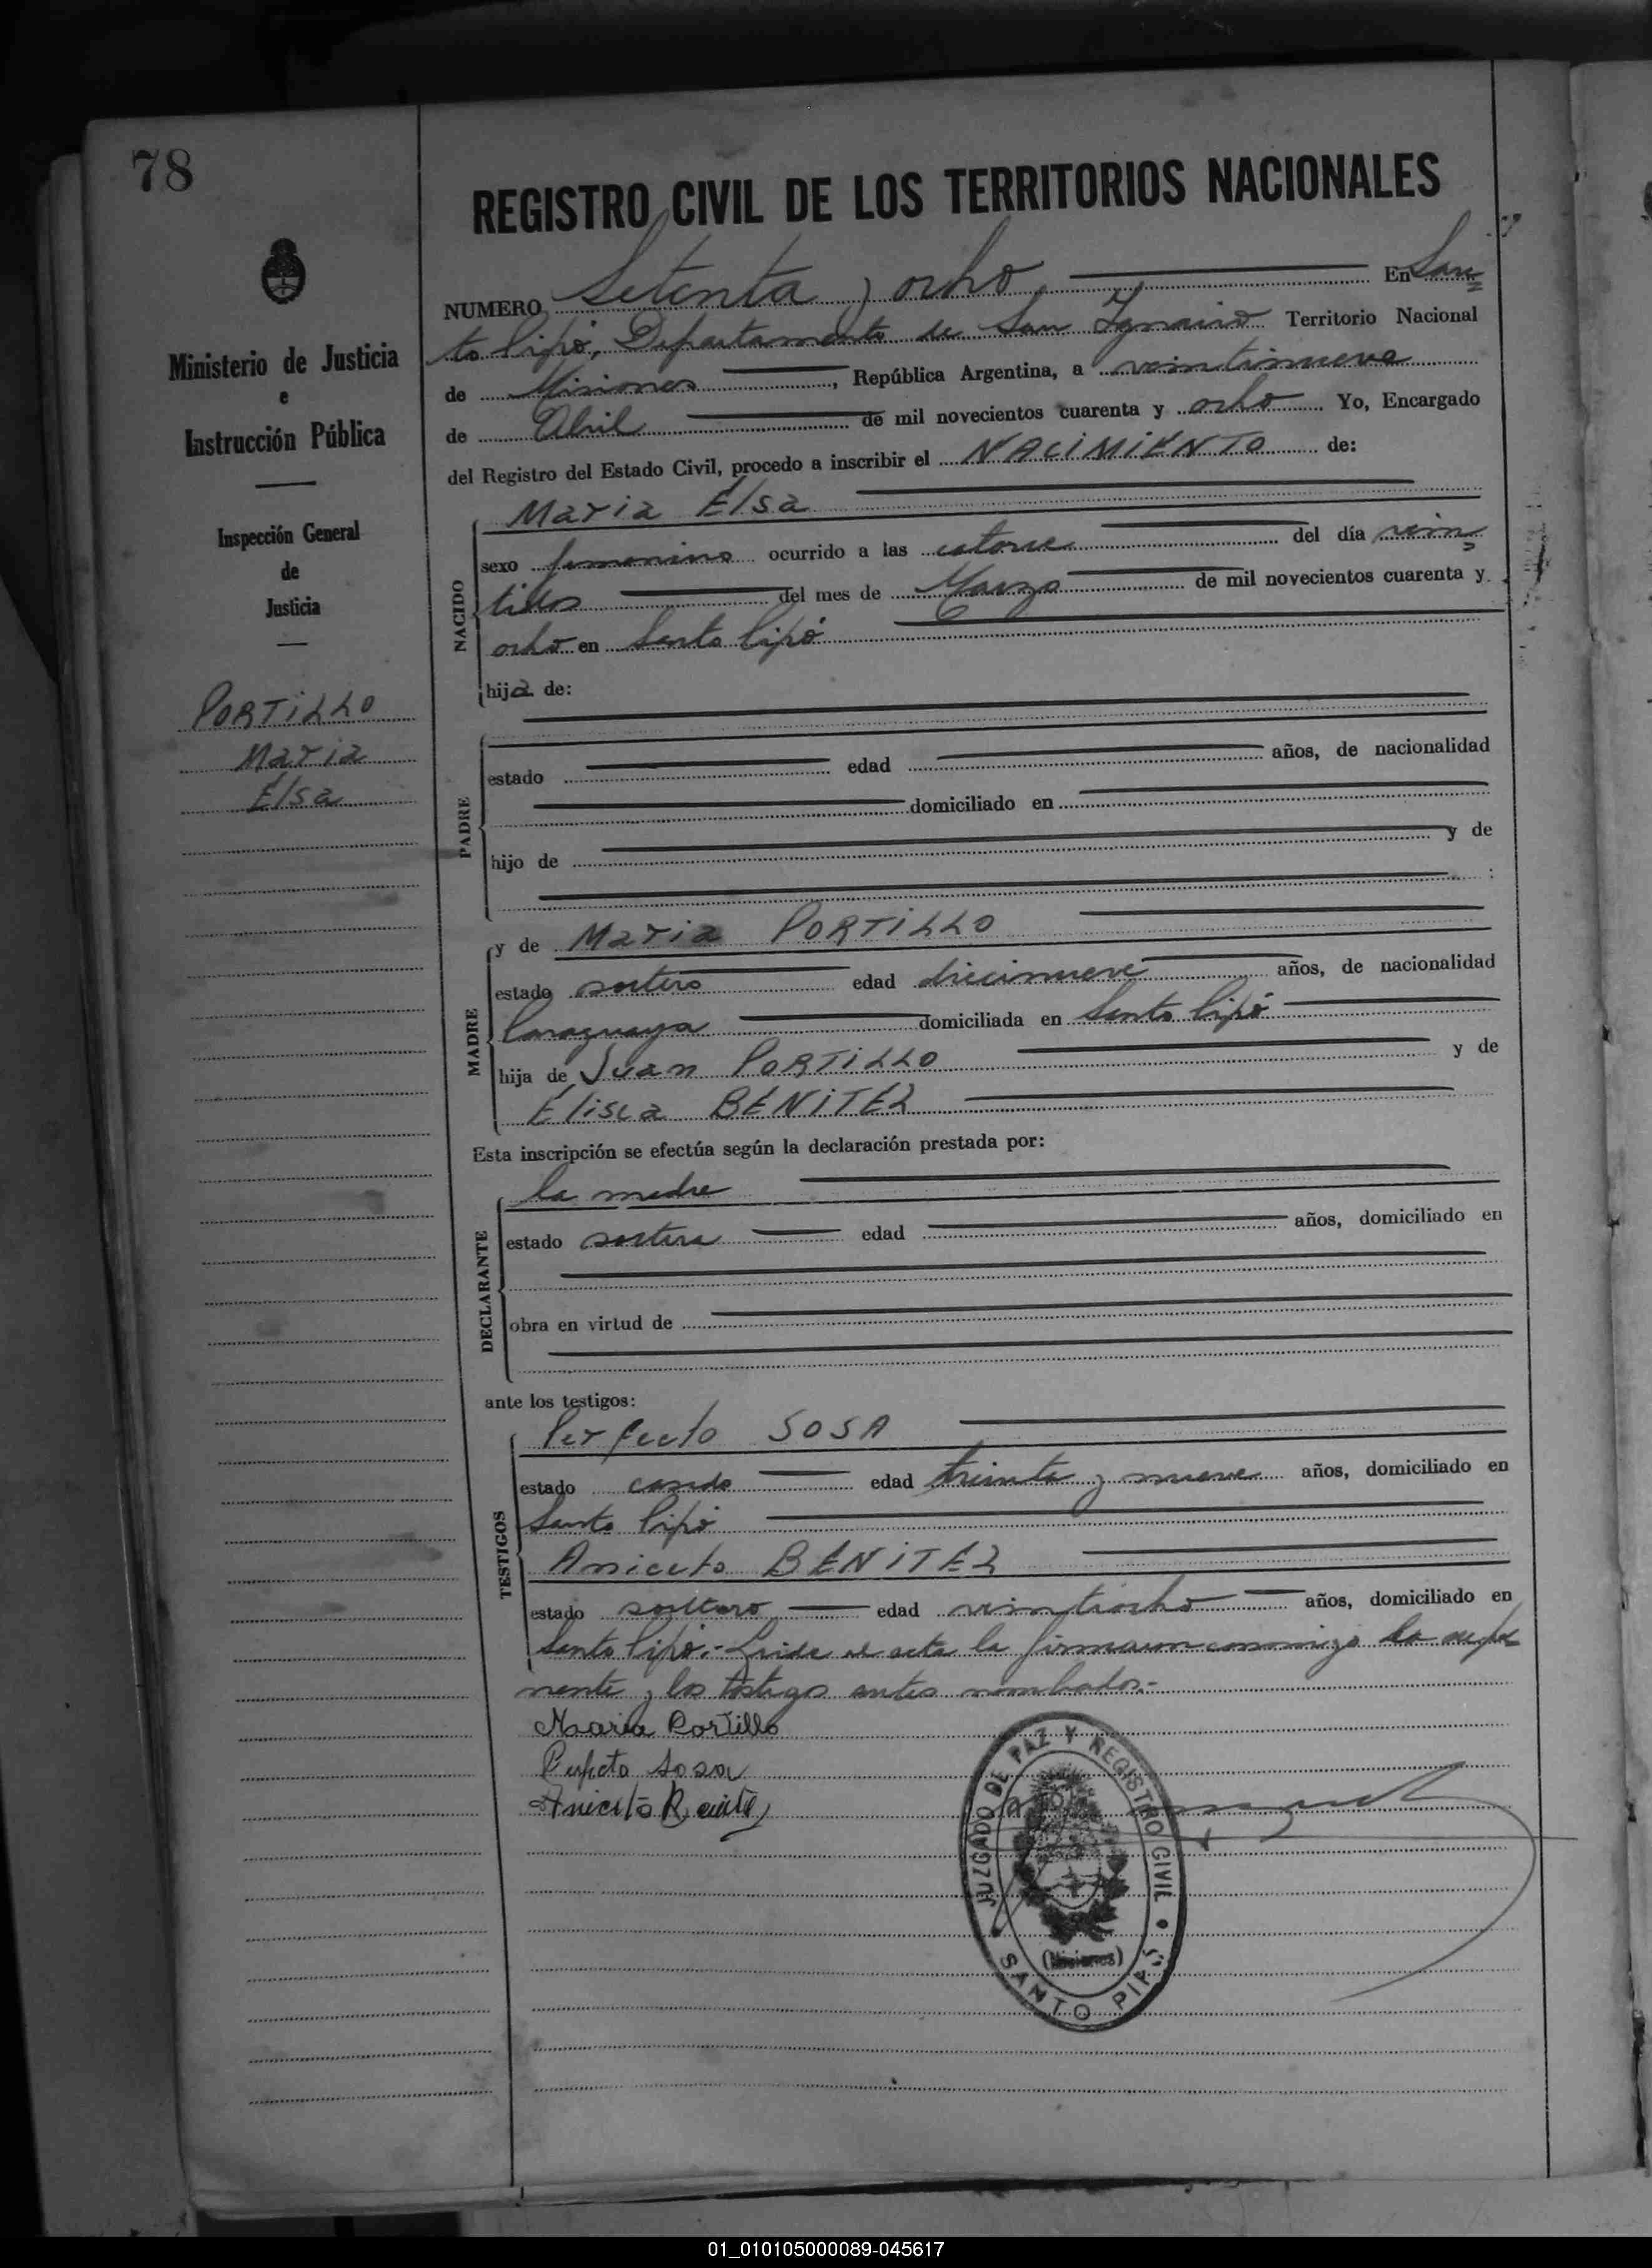 78
REGISTRO CIVIL DE LOS TERRITORIOS NACIONALES
NUMERO Setenta y ocho En San=
to Pipó, Departamento de San Ignacio Territorio Nacional
de Misiones, República Argentina, a veintinueve
de Abril de mil novecientos cuarenta y ocho Yo, Encargado
del Registro del Estado Civil, procedo a inscribir el NACIMIENTO de:
Ministerio de Justicia
e
Instrucción Pública
Inspección General
de
Justicia
PORTILLO
Maria
Elsa
NACIDO
Maria Elsa
sexo femenino ocurrido a las catorce del día vein=
tidos del mes de Marzo de mil novecientos cuarenta y
ocho en Santo Pipó
hija de:
PADRE
estado edad años, de nacionalidad
domiciliado en
hijo de y de
:
MADRE
y de Maria PORTILLO
estado soltera edad diecinueve años, de nacionalidad
Paraguaya domiciliada en Santo Pipó
hija de Juan PORTILLO y de
Elisea BENITEZ
Esta inscripción se efectúa según la declaración prestada por:
DECLARANTE
la madre
estado soltera edad años, domiciliado en
obra en virtud de
ante los testigos:
TESTIGOS
Perfecto SOSA
estado casado edad treinta y nueve años, domiciliado en
Santo Pipó
Aniceto BENITEZ
estado soltero edad veintiocho años, domiciliado en
Santo Pipó.- Leida el acta la firmaron conmigo la expo
nente y los testigos antes nombrados.-
Maria Portillo
Perfecto Sosa
Aniceto Benitez
JUZGADO DE PAZ Y REGISTRO CIVIL
(Misiones)
SANTO PIPÓ
01_010105000089-045617